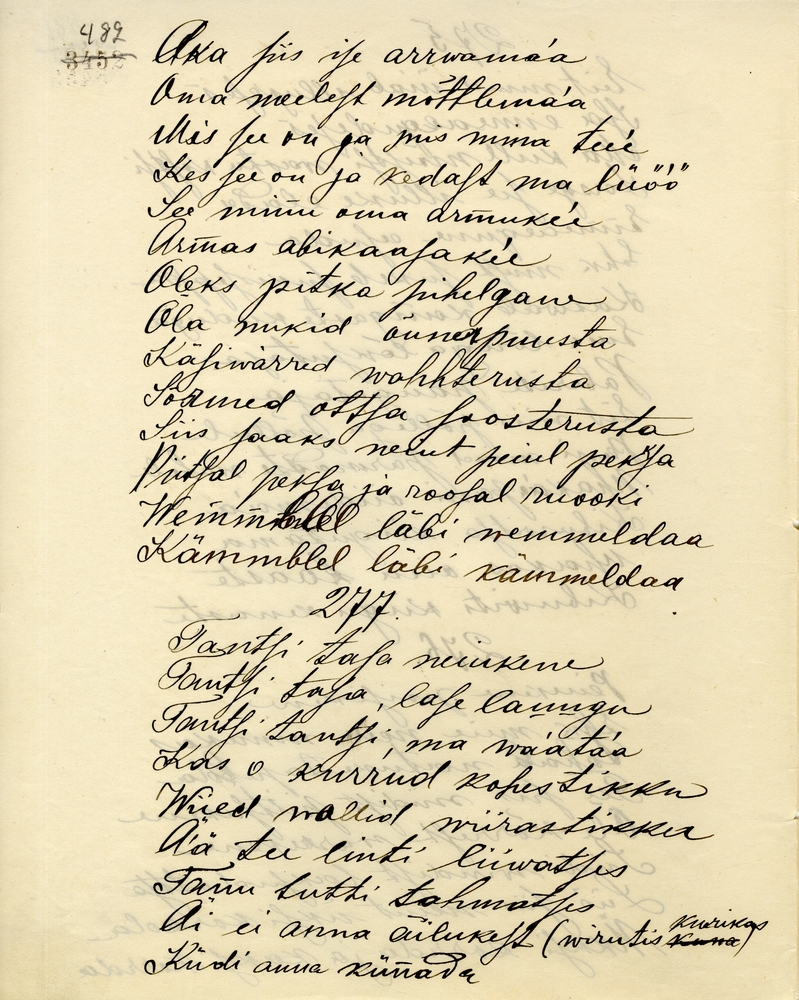 482
3452
Aka siis ise arrwama'a
Oma meelest mõttlema'a
Mis see on ja mis mina tee'e
Kes see on ja kedast ma lüö'ö
See minu oma armuke'e
Armas abikaasake'e
Oleks pitka pihelgane
Õla nukid õunapuusta
Käsiwärred wahhterusta
Sõrmed ottsa soosterusta
Siis saaks neiut peiul peksa
Piitsal peksa ja roosal ruooki
Wemmblel läbi wemmeldaa
Kämmblel läbi kämmeldaa
277.
Tantsi tasa neiukene
Tantsi tasa, lase laungu
Tantsi tantsi, ma wa'ata'a
Kas o kurrud kohestikku
Wiied wallid wiirastikku
Ää tee linti liiwatses
Tanu tutti tahmatses
Äi ei anna äilukest (wirutis kuna kuurikas)
Küdi anna künada